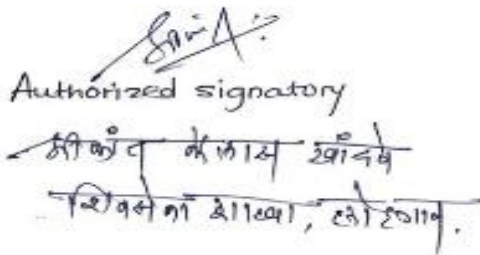 Authorized signatory
श्रीकांत कैलास खांदवे
शिवसेना शाखा,